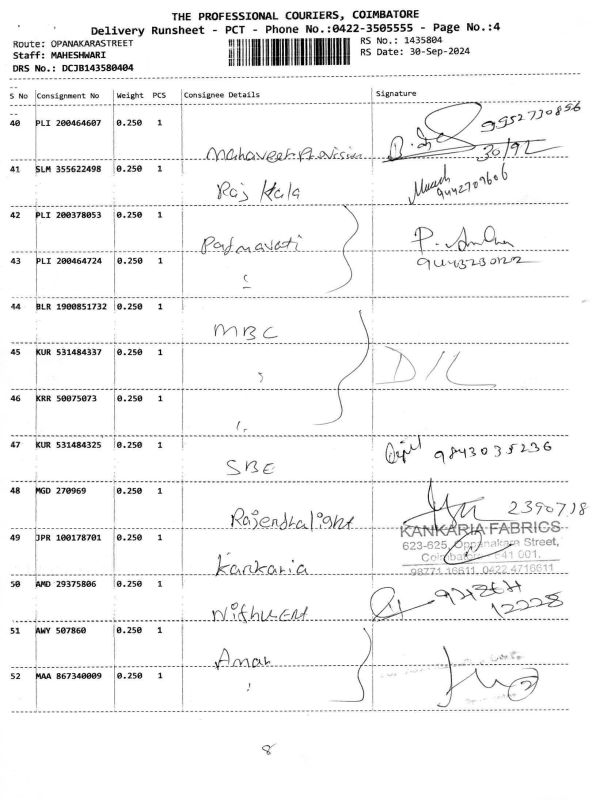 THE PROFESSIONAL COURIERS, COIMBATORE
Delivery Runsheet - PCT - Phone No.:0422-3505555 - Page No.:4
Route: OPANAKARASTREET
RS No.: 1435804
Staff: MAHESHWARI
RS Date: 30-Sep-2024
DRS No.: DCJB143580404
S No Consignment No Weight PCS Consignee Details Signature
40 PLI 200464607 0.250 1
9952730856
Mahaveer Provision
30/9
41 SLM 355622498 0.250 1
Raj Kala
9442707606
42 PLI 200378053 0.250 1
Padmavati
43 PLI 200464724 0.250 1
44 BLR 1900851732 0.250 1
MBC
45 KUR 531484337 0.250 1
D/L
46 KRR 50075073 0.250 1
47 KUR 531484325 0.250 1
9843035236
SBE
48 MGD 270969 0.250 1
2390718
Rajendra light
KANKARIA FABRICS
49 JPR 100178701 0.250 1
623-625, Oppanakara Street,
Coimbatore - 641 001.
Kankaria
98771 16611, 0422 4716611
50 AMD 29375806 0.250 1
12228
51 AWY 507860 0.250 1
Amar
52 MAA 867340009 0.250 1
2
8